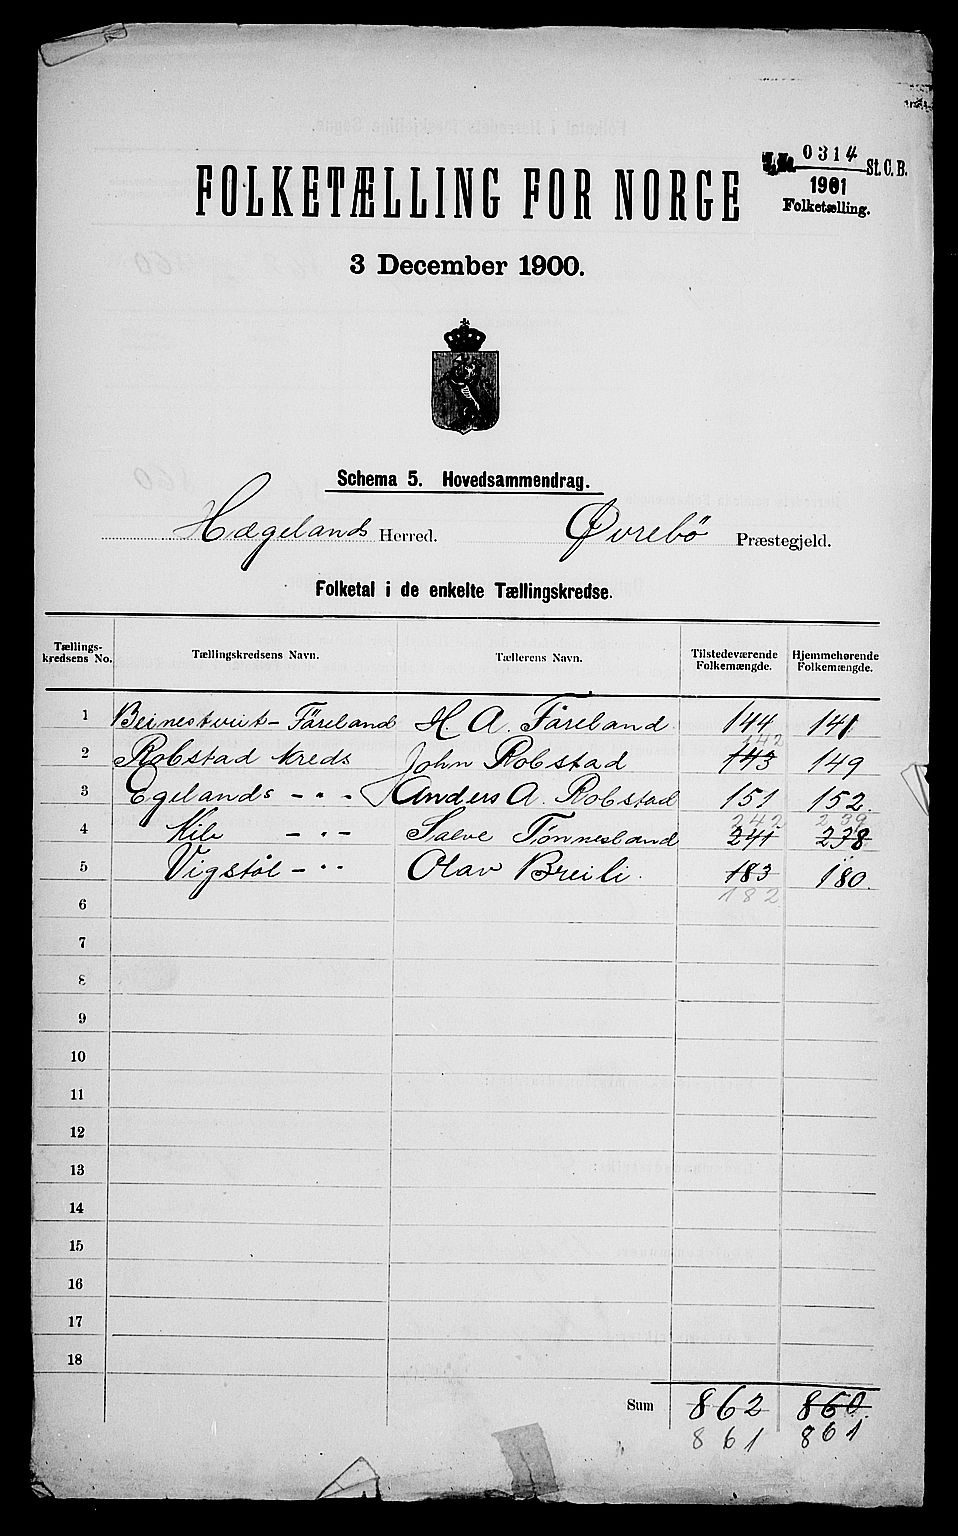 FOLKETÆLLING FOR NORGE
0314 St. C. B.
1901
Folketælling.
3 December 1900.
Schema 5. Hovedsammendrag.
Hægelands Herred. Øvrebö Præstegjeld.
Folketal i de enkelte Tællingskredse.
Tællings-kredsens No. Tællingskredsens Navn. Tællerens Navn. Tilstedeværende Folkemængde. Hjemmehørende Folkemængde.
1 Beinestveit - Fåreland H A. Fåreland. 144 141
142
2 Robstad Kreds John Robstad 143 149
3 Egelands - " - Anders A. Robstad 151 152.
242 239
4 Kile - " - Salve Tønnesland 241 238
5 Vigstøl - " Olav Breili. 183 180.
182
6
7
8
9
10
11
12
13
14
15
16
17
18
Sum 862 860.
861 861